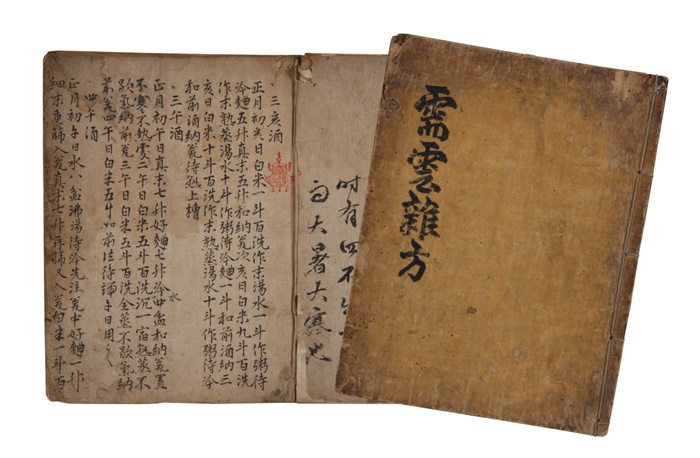 需雲雜方
時有四不
即大暑大寒也
三亥酒
正月初亥日白米一斗百洗作末湯水一斗作粥待
冷麯五升真末五升和納瓮次亥日白米九斗百洗
作末熟蒸湯水十斗作粥待冷麯一斗和前酒納三
亥日白米十斗百洗作末熟蒸湯水十斗作粥待冷
和前酒納瓮待熟上槽
三午酒
正月初午日真末七升好麯七升冷水四盆和納瓮置
不寒不熱處二午日白米五斗百洗沉一宿熟蒸不
歇氣納前瓮三午日白米五斗百洗全蒸不歇氣納
前瓮四午日白米五斗如前法待端午日用之
四午酒
正月初午日水八盆沸湯待冷先注瓮中好麯一斗
細末重篩入瓮真末七升再篩又入瓮白米一斗百